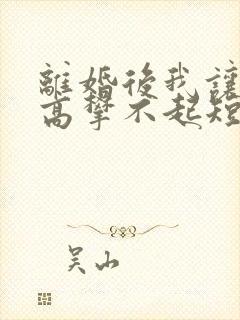 離婚後我讓
高攀不起短
吴山